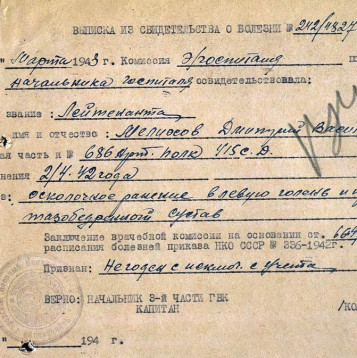 ВЫПИСКА ИЗ СВИДЕТЕЛЬСТВА О БОЛЕЗНИ № 242/4827
" Марта 1943 г. Комиссия Э/госпиталя
начальника госпиталя освидетельствовала:
звание: Лейтенанта
имя и отчество: Мелиосов Дмитрий Васи
ая часть и № 686 Арт. полк 415 с.Д.
нения 2/4. 42 года
з: осколочное ранение в левую голень и
тазобедренный сустав
Заключение врачебной комиссии на основании ст.
расписания болезней приказа НКО СССР № 336-1942г.
Признан: Негоден с исключ. с учета
ВЕРНО: НАЧАЛЬНИК 3-й ЧАСТИ ГВК
КАПИТАН /КО
" 194 г.